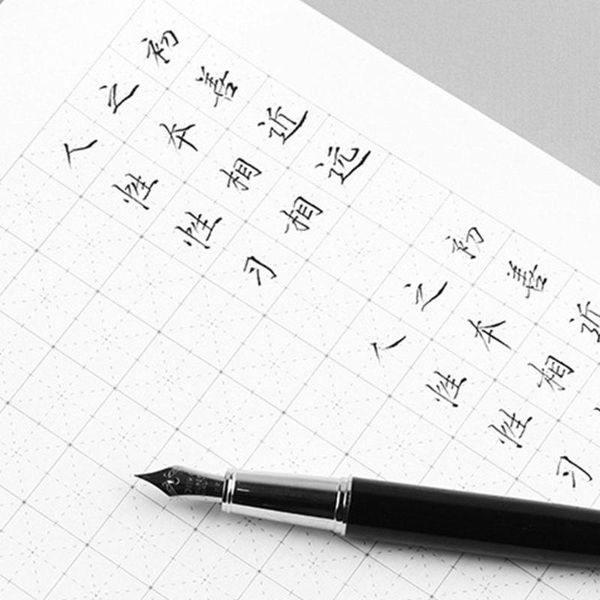 人之初
性本善
性相近
习相远
人之初
性本善
性相近
习